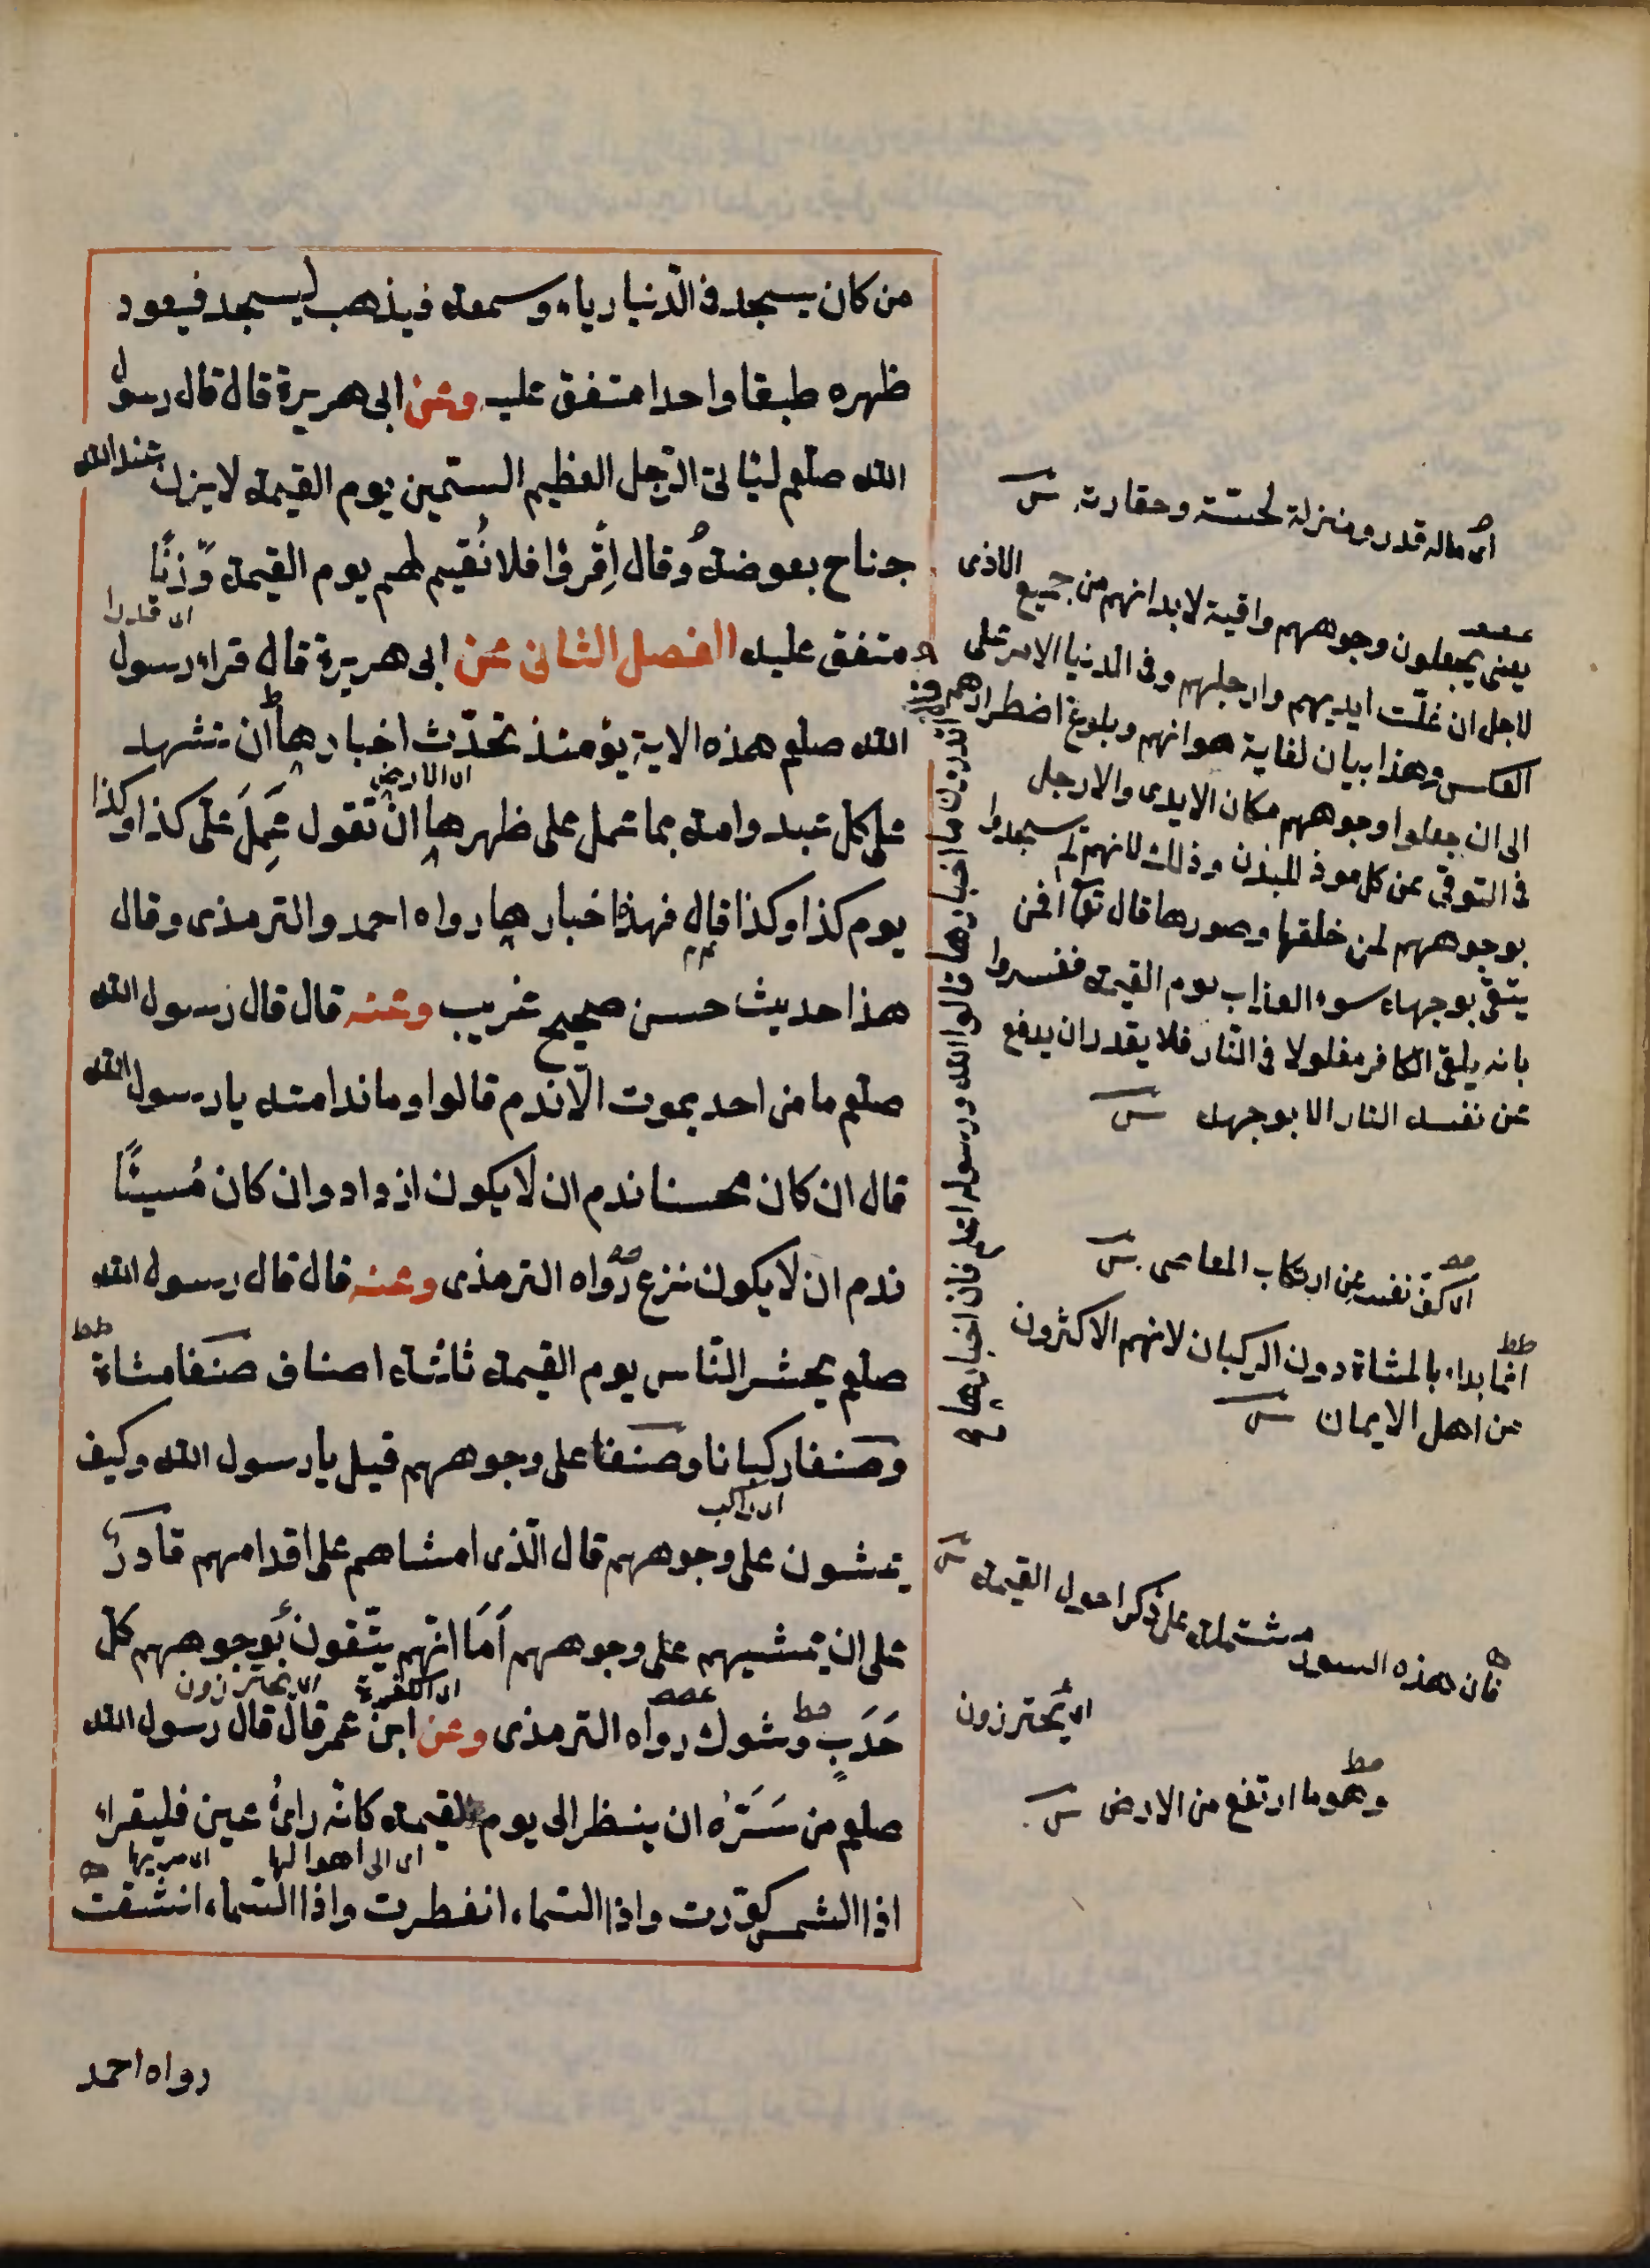 من كان يسجد فى الدّنيا رياء وسمعة فيذهب ليسجد فيعود
ظهره طبقا واحدا متفق عليه وعن ابى هريرة قال قال رسول
الله صلعم ليأتى الرّجل العظيم السّمين يوم القيمة لا يزن عند الله
جناح بعوضة وقال اِقْرؤا فلا نُقيم لهم يوم القيمة وَزْنًا
اى قدرا
متفق عليه الفصل الثانى عن ابى هريرة قال قراء رسول
الله صلعم هذه الاية يؤمئذ تحدّث اخبارها ان تشهد
اى الارض
على كل عبد وامة بما عمل على ظهرها ان تقول عَمِلَ عَلَىّ كذا وكذا
يوم كذا وكذا قال فهذا اخبارها رواه احمد والترمذى وقال
هذا حديث حسن صحيح غريب وعنه قال قال رسول الله
صلعم ما من احد يموت الّا ندم قالوا وما ندامته يا رسول الله
قال ان كان محسنا ندم ان لا يكون ازداد وان كان مُسيئًا
ندم ان لا يكون نزع رواه الترمذى وعنه قال قال رسول الله
صلعم يحشر النّاس يوم القيمة ثلثة اصناف صنفا مشاة
وصنفا ركبانا وصنفا على وجوههم قيل يا رسول الله وكيف
اى راكب
يمشون على وجوههم قال الّذى امشاهم على اقدامهم قادرٌ
على ان يمشيهم على وجوههم اَمَا انّهم يتّقون بوجوههم كل
اى الكفرة اى يحترزون
حَدَبٍ وشوك رواه الترمذى وعن ابن عمر قال قال رسول الله
صلعم من سَرَّه ان ينظر الى يوم القيمة كانّه راىُ عين فليقراء
اى الى اهوالها
اذا الشمس كوّرت واذا السّماء انفطرت واذا السّماء انشقت
رواه احمد
اى ماله قدر ومنزلة لخسّته وحقارته
يعنى يجعلون وجوههم واقية لابدانهم من جميع الاذى
لاجل ان غلّت ايديهم وارجلهم وفى الدنيا الامر على
العكس وهذا بيان لغاية هوانهم وبلوغ اضطرارهم
الى ان جعلوا وجوههم مكان الايدى والارجل
فى التوقى عن كل موذ للبدن وذلك لانهم لم يسجدوا
بوجوههم لمن خلقها وصورها قال تعا افمن
يتّقى بوجهه سوء العذاب يوم القيمة ففسروا
بانه يلقى الكافر مغلولا فى النّار فلا يقدر ان يدفع
عن نفسه النار الا بوجهه
اتدرون ما اخبارها قالوا الله ورسوله اعلم قال فان اخبارها
اى كفّ نفسه عن ارتكاب المعاصى
انما بداء بالمشاة دون الركبان لانهم الاكثرون
من اهل الايمان
فان هذه السور مشتملة على ذكر احول القيمة
اى يحترزون
وهو ما ارتفع من الارض